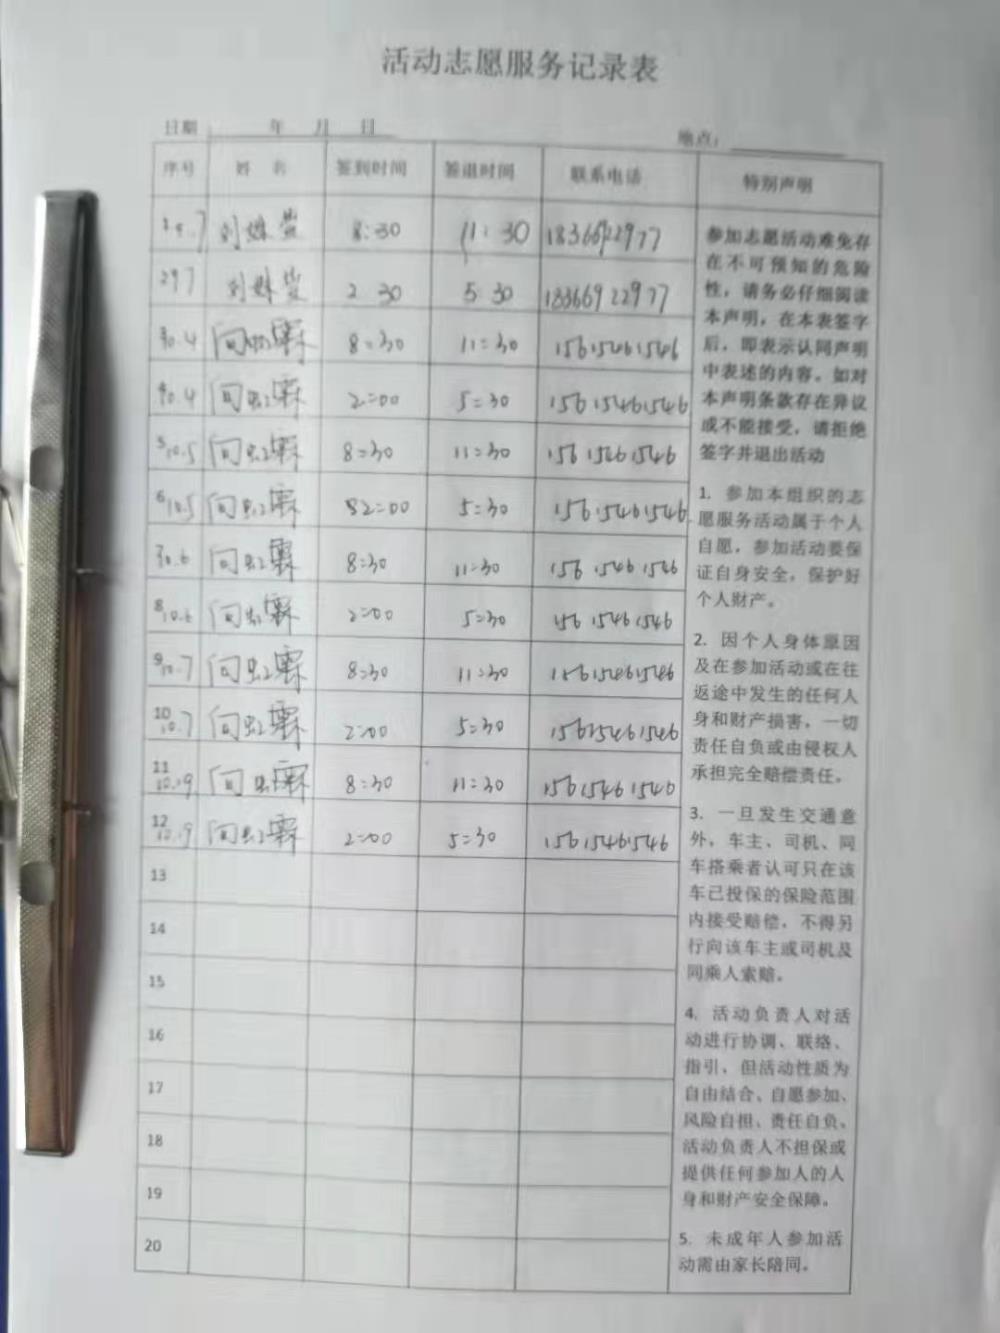 活动志愿服务记录表
日期 年 月 日 地点：
序号 姓 名 签到时间 签退时间 联系电话 特别声明
8:30 11:30 18366922977
2 30 5 30 18366922977
8:30 11:30 15615461546
10.4 2:00 5:30 15615461546
5 10.5 8:30 11:30 15615461546
6 10.5 82:00 5:30 15615461546
8:30 11:30 15615461546
8 10.6 2:00 5:30 15615461546
9 10.7 8:30 11:30 15615461546
10 10.7 2:00 5:30 15615461546
11 8:30 11:30 15615461546
12 2:00 5:30 15615461546
13
14
15
16
17
18
19
20
参加志愿活动难免存
在不可预知的危险
性，请务必仔细阅读
本声明，在本表签字
后，即表示认同声明
中表述的内容。如对
本声明条款存在异议
或不能接受，请拒绝
签字并退出活动
1. 参加本组织的志
愿服务活动属于个人
自愿，参加活动要保
证自身安全，保护好
个人财产。
2. 因个人身体原因
及在参加活动或在往
返途中发生的任何人
身和财产损害，一切
责任自负或由侵权人
承担完全赔偿责任。
3. 一旦发生交通意
外，车主、司机、同
车搭乘者认可只在该
车已投保的保险范围
内接受赔偿，不得另
行向该车主或司机及
同乘人索赔。
4. 活动负责人对活
动进行协调、联络、
指引，但活动性质为
自由结合、自愿参加、
风险自担、责任自负、
活动负责人不担保或
提供任何参加人的人
身和财产安全保障。
5. 未成年人参加活
动需由家长陪同。